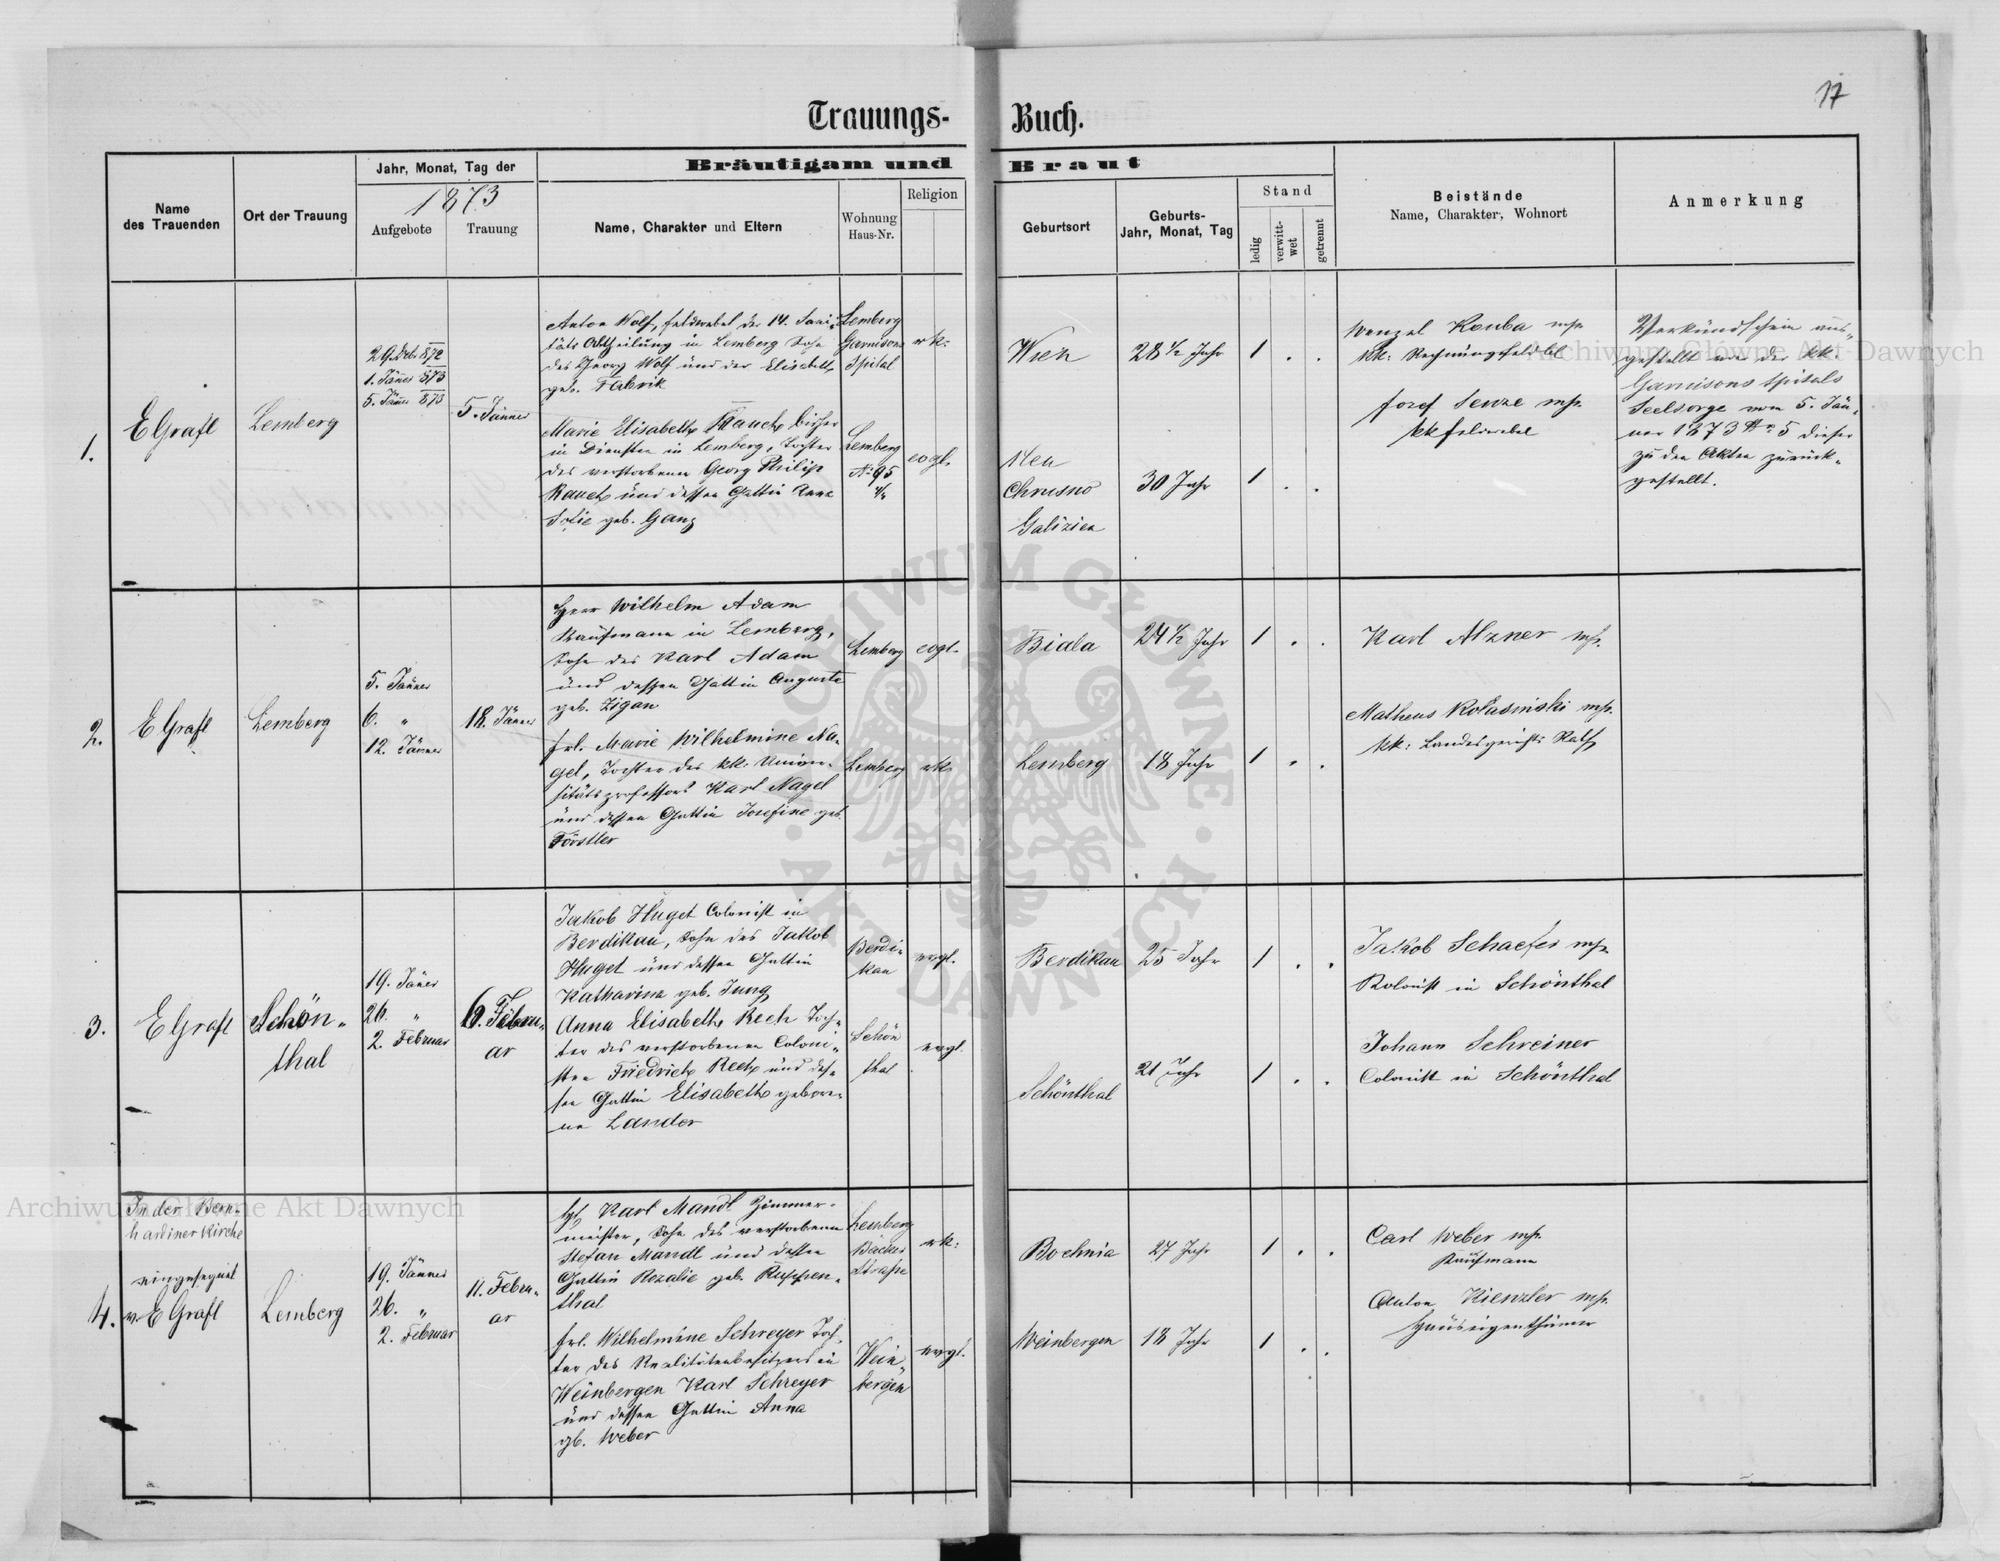 17
Trauungs- Buch.
Bräutigam und Braut
Name des Trauenden
Ort der Trauung
Jahr, Monat, Tag der
1873
Aufgebote
Trauung
Name, Charakter und Eltern
Wohnung Haus-Nr.
Religion
Geburtsort
Geburts-
Jahr, Monat, Tag
Stand
ledig
verwitt-wet
getrennt
Beistände
Name, Charakter, Wohnort
Anmerkung
1.
E Grafl
Lemberg
29. Dcb. 872
1. Jäner 873
5. Jäner 873
5. Jänner
Anton Wolf, Feldwebel der 14. Sani-
täts Abtheilung in Lemberg Sohn
des Georg Wolf und der Elisabeth
geb. Fabrik
Lemberg
Garnisons
Spital
rk:
Wien
28 1/2 Jahr
1 . .
Marie Elisabeth Rauch bisher
in Diensten in Lemberg, Tochter
des verstorbenen Georg Philip
Rauch und dessen Gattin Anna
Sofie geb. Ganz
Lemberg
No 95
4/4
evgl.
Neu
Chrusno
Galizien
30 Jahr
1 . .
Wenzel Kouba mp.
kk: Rechnungsfeldwbl
Josef Senze mp.
kk Feldwebel
Verkündschein aus-
gestellt von der kk.
Garnisons Spitals
Seelsorge vom 5. Jän-
ner 1873 No 5 dieser
zu den Akten zurück-
gestellt.
2.
E Grafl
Lemberg
5. Jänner
6. "
12. Jänner
18. Jänner
Herr Wilhelm Adam
Kaufmann in Lemberg,
Sohn des Karl Adam
und dessen Gattin Auguste
geb. Zigan
Lemberg
evgl.
Biala
24 1/2 Jahr
1 . .
Frl. Marie Wilhelmine Na-
gel, Tochter des kk: Univer-
sitätsprofessors Karl Nagel
und dessen Gattin Josefine geb.
Förstler
Lemberg
rk.
Lemberg
18 Jahr
1 . .
Karl Alzner mp.
Matheus Kolasinski mp.
kk: Landesgerichts Rath
3.
E Grafl
Schön-
thal
19. Jäner
26. "
2. Februar
6. Febru-
ar
Jakob Huget Colonist in
Berdikau, Sohn des Jakob
Huget und dessen Gattin
Katharina geb. Jung
Berdi-
kau
evgl.
Berdikau
25 Jahr
1 . .
Anna Elisabeth Rech Toch-
ter des verstorbenen Coloni-
sten Friedrich Rech und des-
sen Gattin Elisabeth gebore-
ne Lander
Schön
thal
evgl.
Schönthal
21 Jahr
1 . .
Jakob Schaefer mp.
Kolonist in Schönthal
Johann Schreiner
Colonist in Schönthal
4.
In der Bern-
hardiner Kirche
eingesegnet
v. E Grafl
Lemberg
19. Jänner
26. "
2. Februar
11. Febru-
ar
H. Karl Mandl Zimmer-
meister, Sohn des verstorbenen
Stefan Mandl und dessen
Gattin Rozalie geb. Ruppen-
thal
Lemberg
Bäcker
Strasse
rk:
Bochnia
27 Jahr
1 . .
Frl. Wilhelmine Schreyer Toch-
ter des Realitätenbesitzers in
Weinbergen Karl Schreyer
und dessen Gattin Anna
gb. Weber
Wein-
bergen
evgl.
Weinbergen
18 Jahr
1 . .
Carl Weber mp.
Kaufmann
Anton Kienzler mp.
Hauseigenthümer
Archiwum Główne Akt Dawnych
Archiwum Główne Akt Dawnych
ARCHIWUM GŁÓWNE AKT DAWNYCH